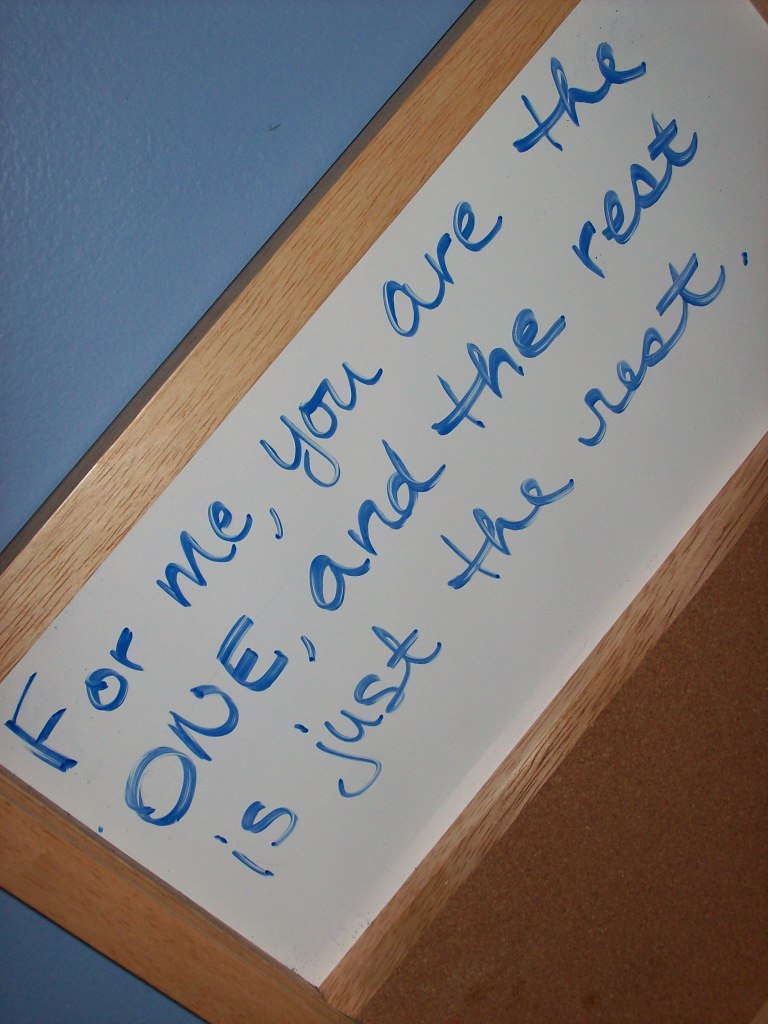 For me, you are the
ONE, and the rest
is just the rest.